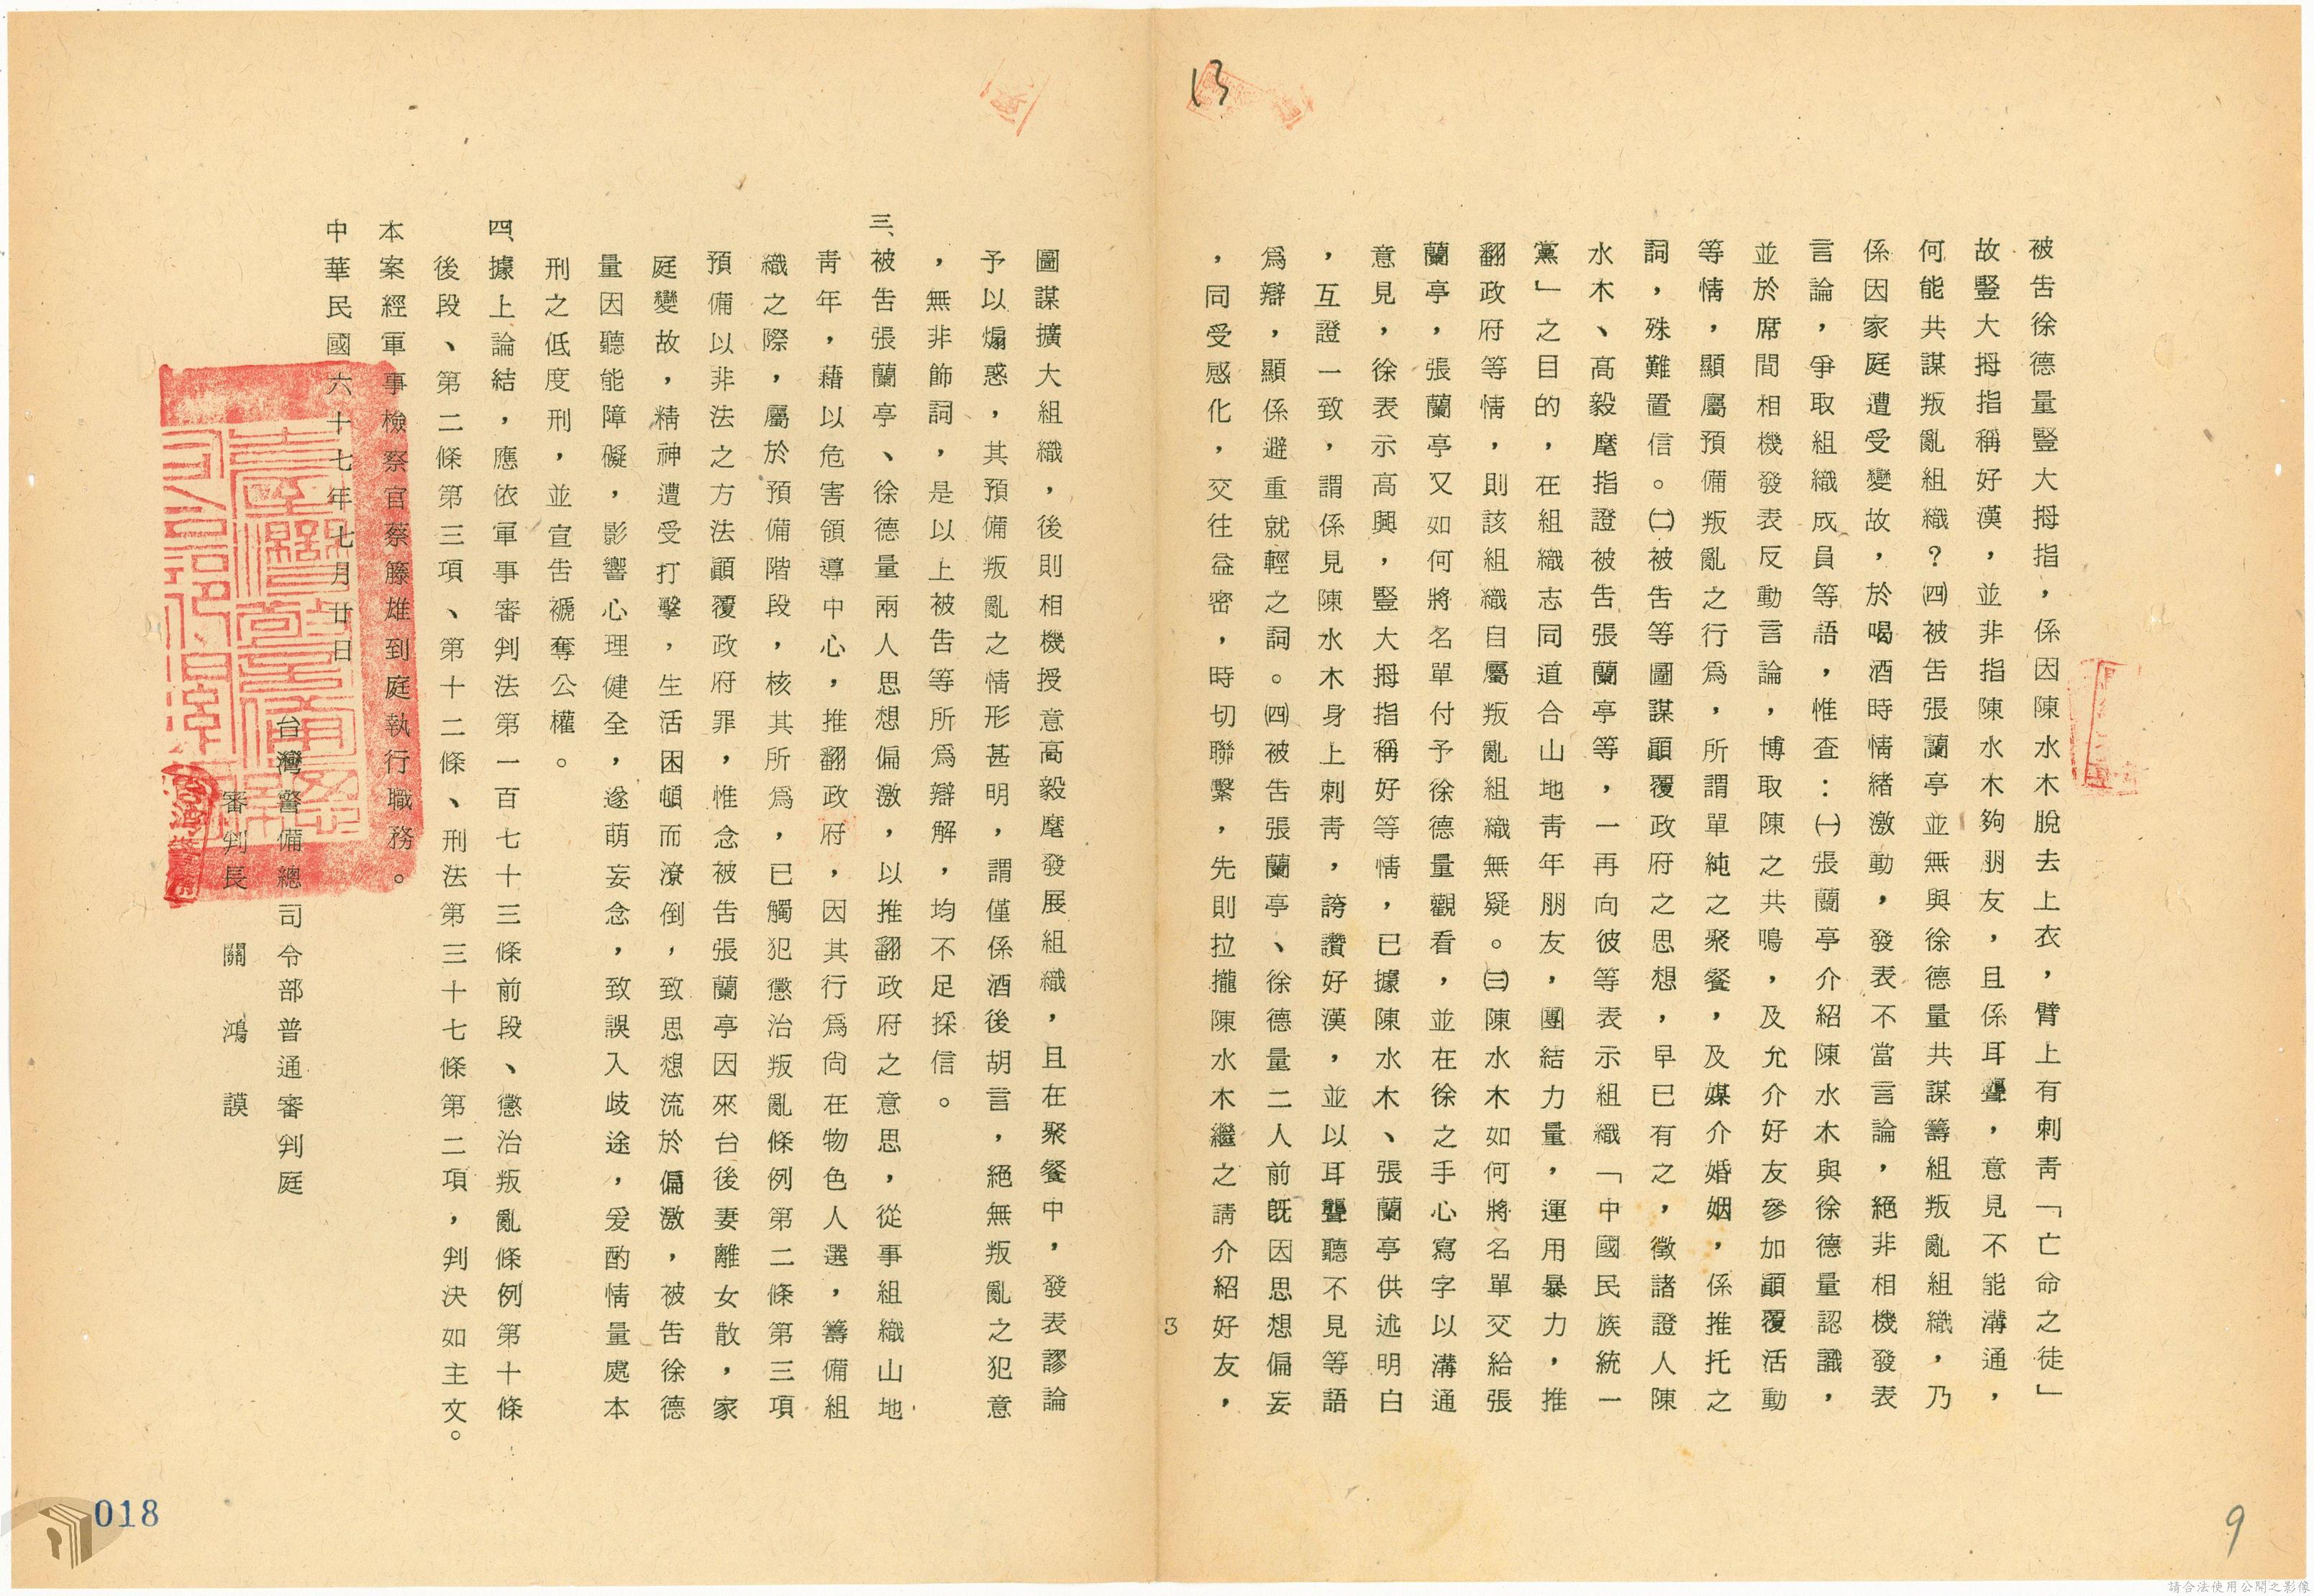 13
被告徐德量豎大拇指，係因陳水木脫去上衣，臂上有刺青「亡命之徒」
故豎大拇指稱好漢，並非指陳水木夠朋友，且係耳聾，意見不能溝通，
何能共謀叛亂組織？㈣被告張蘭亭並無與徐德量共謀籌組叛亂組織，乃
係因家庭遭受變故，於喝酒時情緒激動，發表不當言論，絕非相機發表
言論，爭取組織成員等語，惟查：㈠張蘭亭介紹陳水木與徐德量認識，
並於席間相機發表反動言論，博取陳之共鳴，及允介好友參加顚覆活動
等情，顯屬預備叛亂之行爲，所謂單純之聚餐，及媒介婚姻，係推托之
詞，殊難置信。㈡被告等圖謀顚覆政府之思想，早已有之，徵諸證人陳
水木、高毅麾指證被告張蘭亭等，一再向彼等表示組織「中國民族統一
黨」之目的，在組織志同道合山地青年朋友，團結力量，運用暴力，推
翻政府等情，則該組織自屬叛亂組織無疑。㈢陳水木如何將名單交給張
蘭亭，張蘭亭又如何將名單付予徐德量觀看，並在徐之手心寫字以溝通
意見，徐表示高興，豎大拇指稱好等情，已據陳水木、張蘭亭供述明白
，互證一致，謂係見陳水木身上刺青，誇讚好漢，並以耳聾聽不見等語
爲辯，顯係避重就輕之詞。㈣被告張蘭亭、徐德量二人前既因思想偏妄
，同受感化，交往益密，時切聯繫，先則拉攏陳水木繼之請介紹好友，
3
9
圖謀擴大組織，後則相機授意高毅麾發展組織，且在聚餐中，發表謬論
予以煽惑，其預備叛亂之情形甚明，謂僅係酒後胡言，絕無叛亂之犯意
，無非飾詞，是以上被告等所爲辯解，均不足採信。
三、被告張蘭亭、徐德量兩人思想偏激，以推翻政府之意思，從事組織山地
青年，藉以危害領導中心，推翻政府，因其行爲尙在物色人選，籌備組
織之際，屬於預備階段，核其所爲，已觸犯懲治叛亂條例第二條第三項
預備以非法之方法顚覆政府罪，惟念被告張蘭亭因來台後妻離女散，家
庭變故，精神遭受打擊，生活困頓而潦倒，致思想流於偏激，被告徐德
量因聽能障礙，影響心理健全，遂萌妄念，致誤入歧途，爰酌情量處本
刑之低度刑，並宣告褫奪公權。
四、據上論結，應依軍事審判法第一百七十三條前段、懲治叛亂條例第十條
後段、第二條第三項、第十二條、刑法第三十七條第二項，判決如主文。
本案經軍事檢察官蔡籐雄到庭執行職務。
中華民國六十七年七月廿日
台灣警備總司令部普通審判庭
審判長　關　鴻　謨
018
請合法使用公開之影像